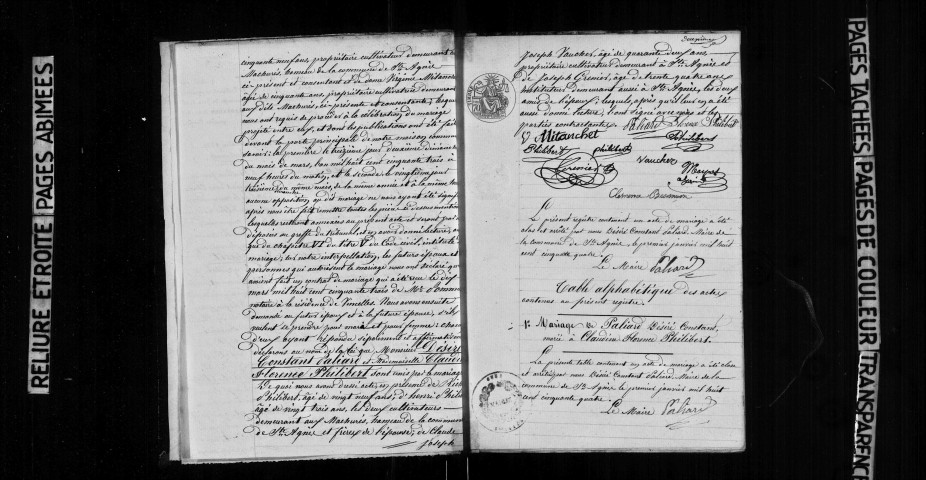 RELIURE ETROITE PAGES ABIMEES
cinquante neuf ans, propriétaire cultivateur demeurant
Machurés, hameau de la commune de Ste Agnès
ci-présent et consentant et de dame Virginie Mitanchet
âgée de cinquante ans, propriétaire cultivatrice demeurant
aux dits Machurés, ci-présente et consentante; lesquels
nous ont requis de procéder à la célébration du mariage
projeté entre eux, et dont les publications ont été faites
devant la porte principale de notre maison commune
savoir: la première le treizième jour deuxième dimanche
du mois de mars, l'an mil huit cent cinquante trois à
neuf heures du matin, et la seconde le vingtième jour
troisième du même mois, de la même année et à la même
aucune opposition au dit mariage ne nous ayant été
après nous être fait remettre toutes les pièces ci-dessus
lesquelles resteront annexées au présent acte et seront
déposées au greffe du tribunal, et en avoir donné lecture,
que du chapitre VI du titre V du Code civil, intitulé du
mariage; sur notre interpellation, les futurs époux et
personnes qui autorisent le mariage nous ont déclaré qu'
avaient fait un contrat de mariage qui a été reçu le dix
mars mil huit cent cinquante trois de Me
notaire à la résidence de Vincelles. Nous avons ensuite
demandé au futur époux et à la future épouse, s'ils
veulent se prendre pour mari et pour femme; chacun
d'eux ayant répondu séparément et affirmativement
déclarons au nom de la loi que Monsieur Désiré
Constant Paliard et Mademoiselle Claudine
Florence Philibert sont unis par le mariage
De quoi nous avons dressé acte, en présence de
Philibert, âgé de vingt neuf ans; d'henri Philibert
âgé de vingt trois ans, les deux cultivateurs
demeurant aux Machurés, hameau de la commune
de Ste Agnès et frères de l'épouse; de Claude
Joseph
Joseph Vaucher, âgé de quarante deux ans
propriétaire cultivateur demeurant à Ste Agnès et
de Joseph Grenier, âgé de trente quatre ans
instituteur demeurant aussi à Ste Agnès, les deux
amis de l'époux; lesquels, après qu'il leur a été
aussi donné lecture, ont signé avec nous et les
parties contractantes. Paliard Florence Philibert
V Mitanchet Philibert
Philibert philibert Vaucher
Grenier
Le présent registre contenant un acte de mariage a été
clos et arrêté par nous Désiré Constant Paliard Maire de
la commune de Ste Agnès le premier janvier mil huit
cent cinquante quatre.
Le Maire Paliard
Table alphabétique des actes
contenus au présent registre.
No 1. Mariage de Paliard Désiré Constant,
marié à Claudine Florence Philibert.
La présente table contenant un acte de mariage a été close
et arrêtée par nous Désiré Constant Paliard Maire de la
commune de Ste Agnès le premier janvier mil huit
cent cinquante quatre.
Le Maire Paliard
PAGES TACHEES PAGES DE COULEUR (TRANSPARENCE